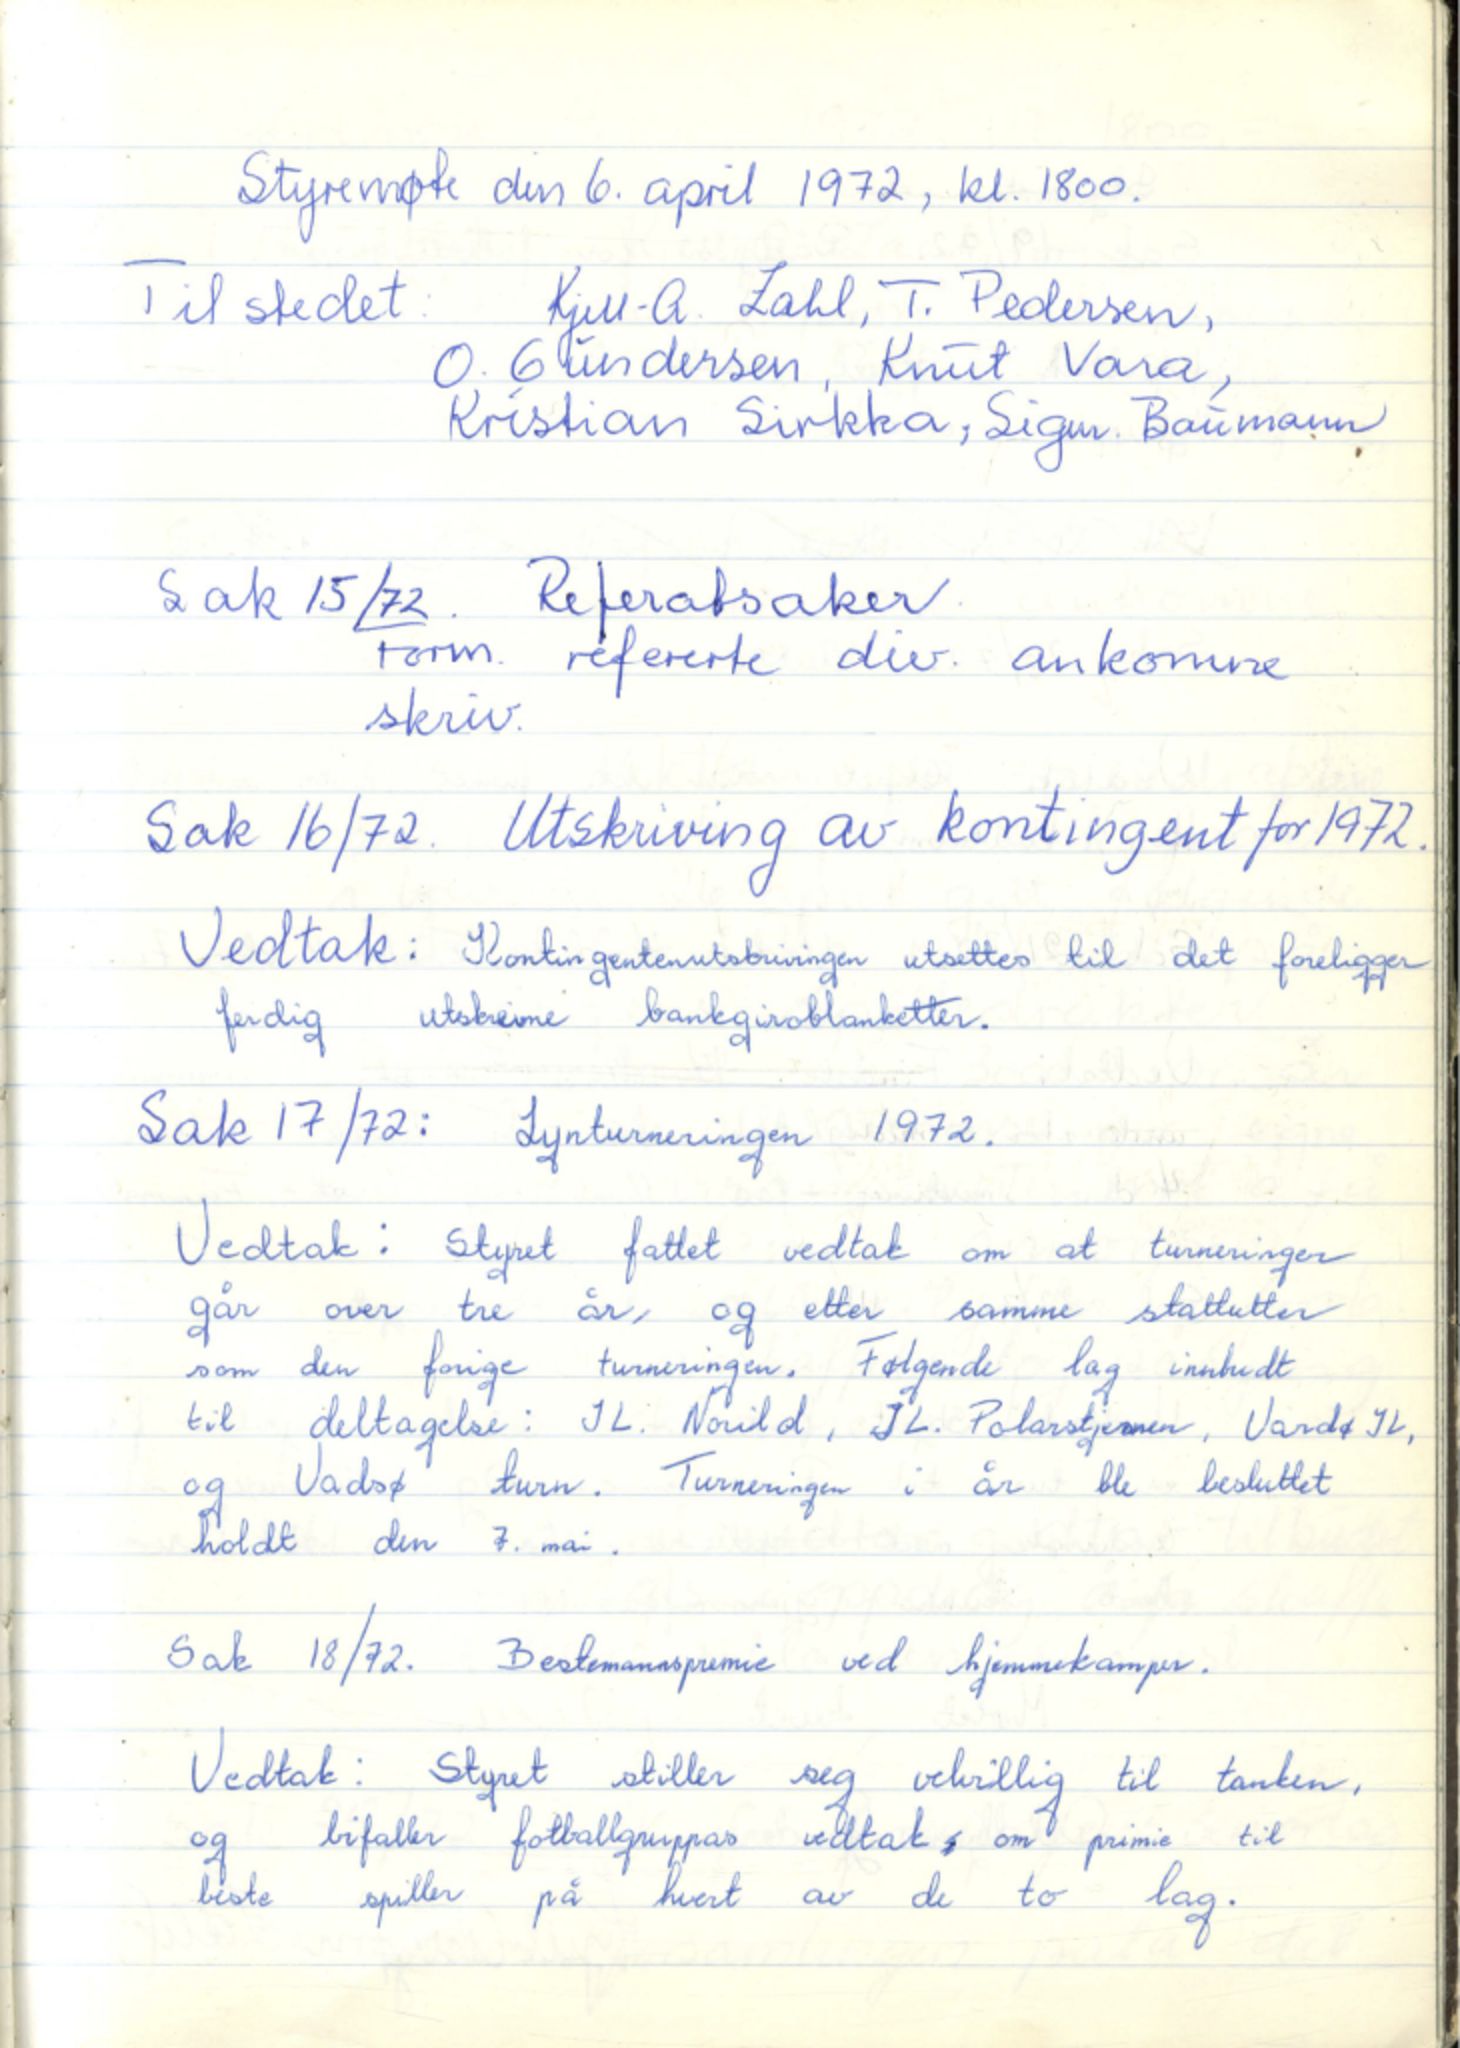 Styremøte den 6. april 1972, kl. 1800.
Til stedet: Kjell-A. Zahl, T. Pedersen,
O. Gundersen, Knut Vara,
Kristian Sirkka, Sigur. Baumann
Sak 15/72. Referatsaker.
Form. refererte div. ankomne
skriv.
Sak 16/72. Utskriving av kontingent for 1972.
Vedtak: Kontingentenutskrivingen utsettes til det foreligger
ferdig utskrevne bankgiroblanketter.
Sak 17/72: Lynturneringen 1972.
Vedtak: Styret fattet vedtak om at turneringen
går over tre år, og etter samme stattutter
som den forige turneringen. Følgende lag innbudt
til deltagelse: IL. Norild, IL. Polarstjernen, Vardø IL,
og Vadsø turn. Turneringen i år ble besluttet
holdt den 7. mai.
Sak 18/72. Bestemannspremie ved hjemmekamper.
Vedtak: Styret stiller seg velvillig til tanken,
og bifaller fotballgruppas vedtak, om primie til
beste spiller på hvert av de to lag.